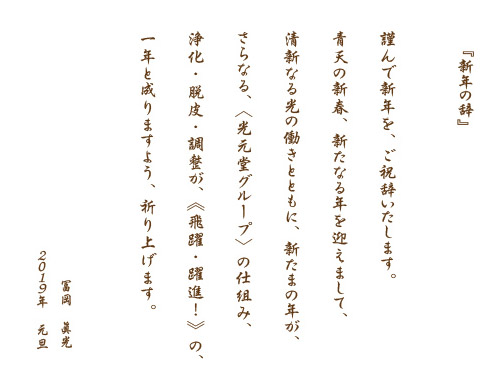 『新年の辞』
謹んで新年を、ご祝辞いたします。
青天の新春、新たなる年を迎えまして、
清新なる光の働きとともに、新たまの年が、
さらなる、〈光元堂グループ〉の仕組み、
浄化・脱皮・調整が、《飛躍・躍進！》の、
一年と成りますよう、祈り上げます。
冨岡 眞光
2019年 元旦